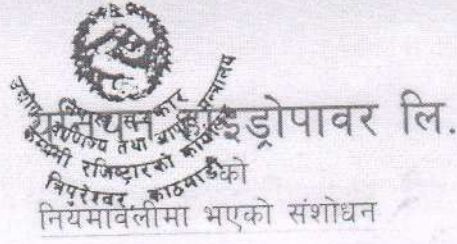 नेपाल सरकार
उद्योग, वाणिज्य तथा आपूर्ति मन्त्रालय
कम्पनी रजिष्ट्रारको कार्यालय
त्रिपुरेश्वर, काठमाडौं
युनियन हाइड्रोपावर लि.
को
नियमावलीमा भएको संशोधन